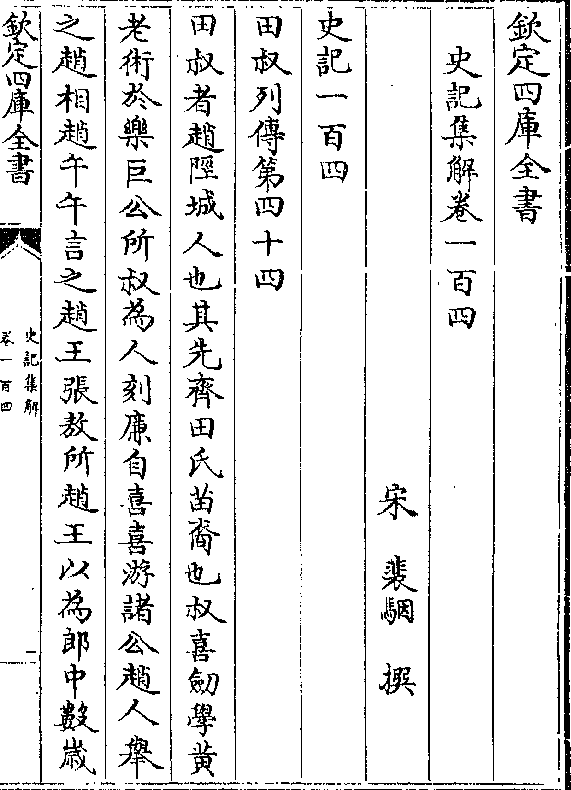 欽定四庫全書
史記集解卷一百四
宋　裴駰　撰
史記一百四
田叔列傳第四十四
田叔者趙陘城人也其先齊田氏苗裔也叔喜劒學黃
老術於樂巨公所叔為人刻廉自喜喜游諸公趙人舉
之趙相趙午午言之趙王張敖所趙王以為郎中數歲
欽定四庫全書
史記集解
卷一百四
一